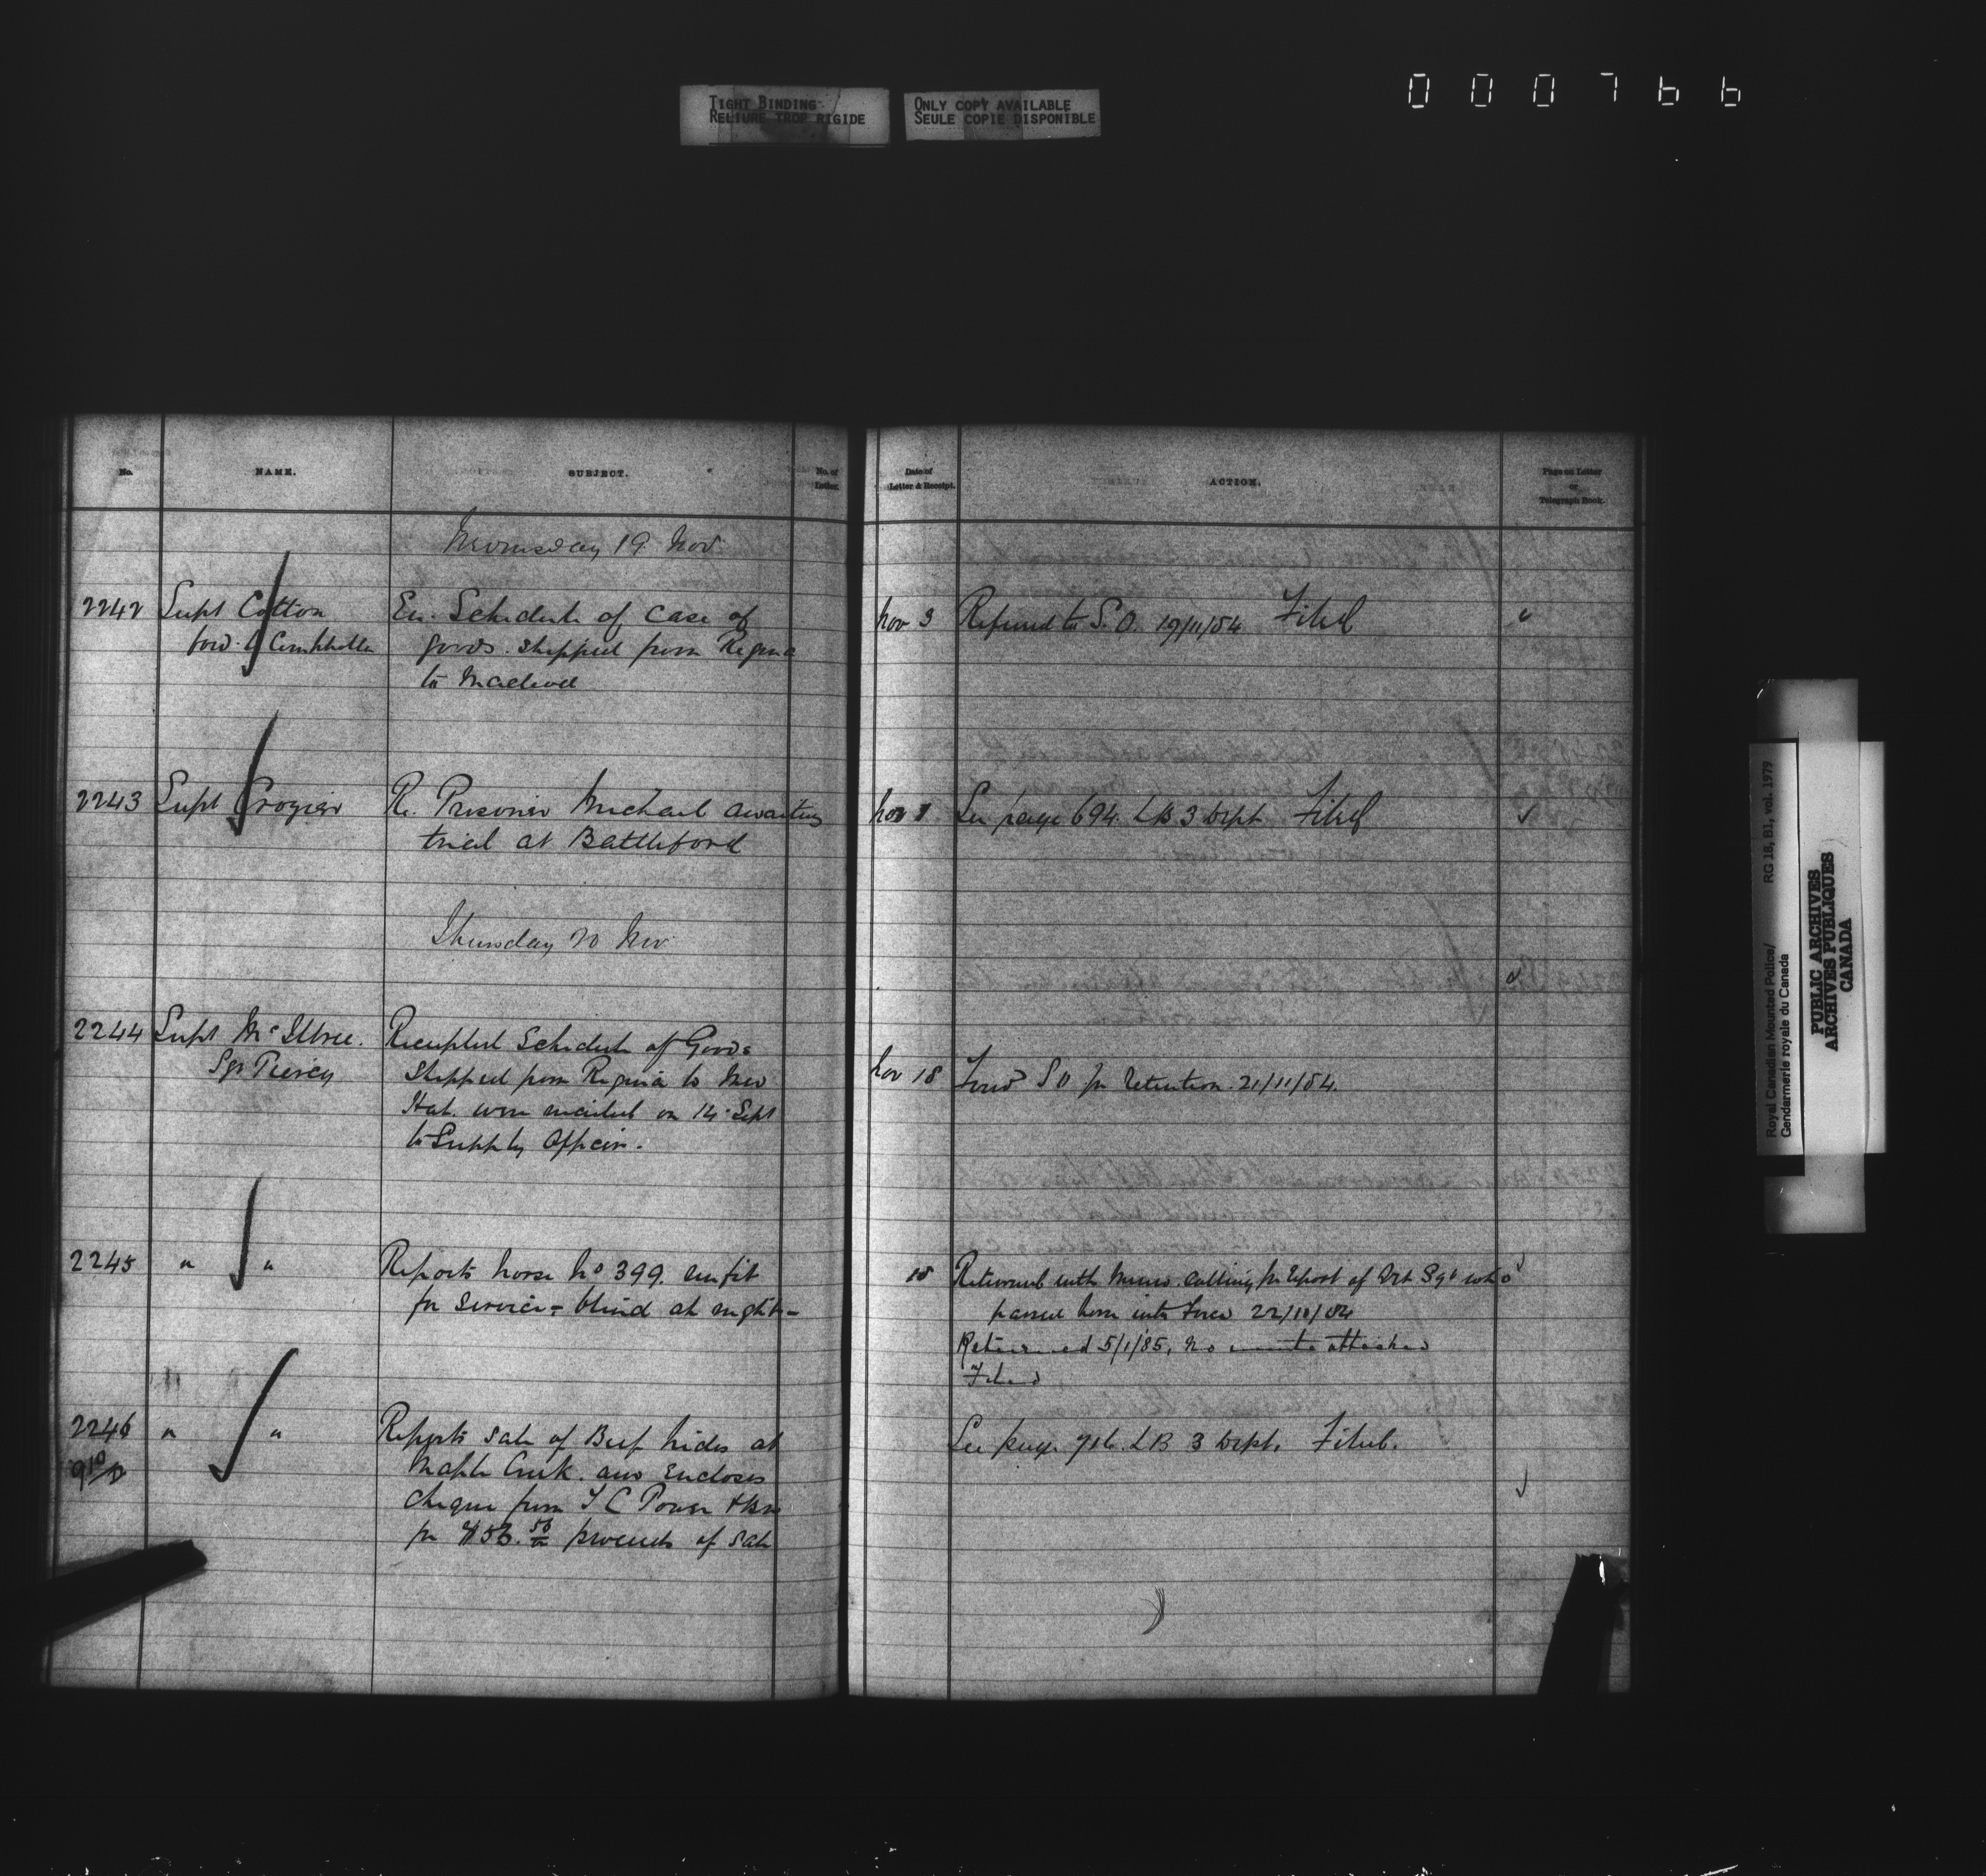 TIGHT BINDING
RELIURE TROP RIGIDE
ONLY COPY AVAILABLE
SEULE COPIE DISPONIBLE
000766
No.
NAME.
SUBJECT.
No. of
Letter.
Date of
Letter & Receipt.
ACTION.
Page on Letter
or
Telegraph Book.
19 Nov
2242 Supt Cotton En. Schedule of case of Nov 3 Referred to S.O. 19/11/84 Filed
ford. goods shipped from Regina
to Macleod
2243 Supt Crozier Re. Prisoner Michael awaiting Nov 1 See page 694. LB 3 Dept Filed
trial at Battleford
Thursday 20 Nov
2244 Supt McIllree. Receipted Schedule of Goods
Sgt Piercy Shipped from Regina to Med Nov 18 Forwd S O for retention. 21/11/84.
Hat. were mailed on 14 Sept
to Supply Officer.
2245 " " Reports horse No 399. unfit 18 Returned with memo. calling for report of Vet Sgt who
for service - blind at night - passed horse into Force 22/11/84
Returned 5/1/85, No attached
Filed
2246 " " Reports sale of Beef hides at See page 716. LB 3 Dept. Filed.
Maple Creek. and encloses
cheque from T C Power & Bro
for proceeds of sale
Royal Canadian Mounted Police/
Gendarmerie royale du Canada
RG 18, B1, vol. 1979
PUBLIC ARCHIVES
ARCHIVES PUBLIQUES
CANADA